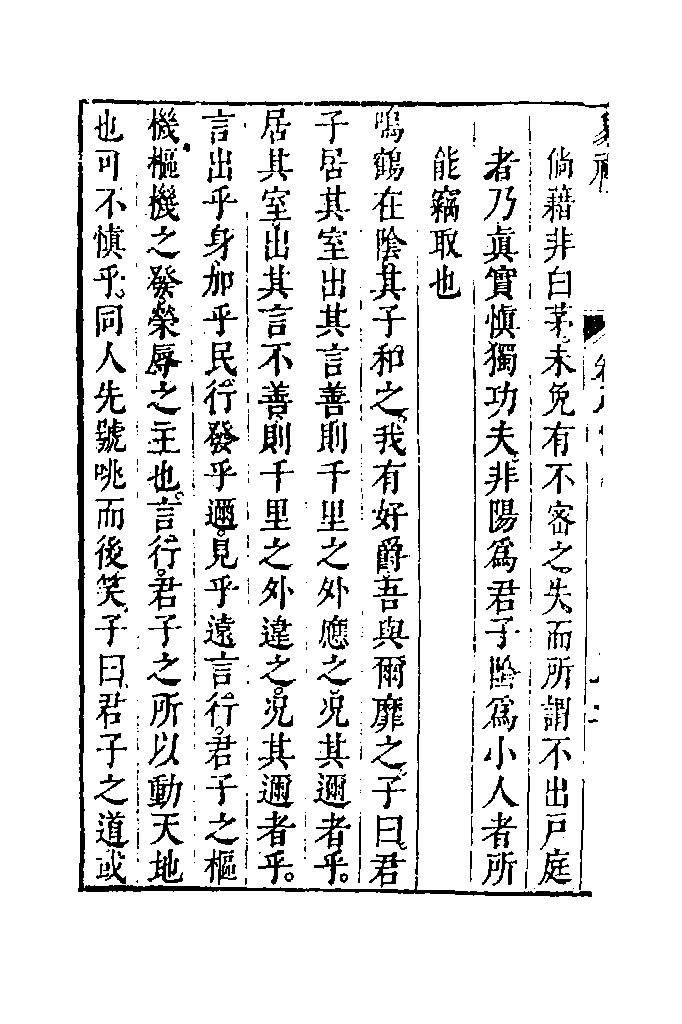 倘藉非白茅未免有不密之失而所謂不出戶庭
者乃眞實慎獨功夫非陽爲君子陰爲小人者所
能竊取也
鳴鶴在陰其子和之我有好爵吾與爾靡之子曰君
子居其室出其言善則千里之外應之况其邇者乎
居其室出其言不善則千里之外違之况其邇者乎
言出乎身加乎民行發乎邇見乎遠言行君子之樞
機樞機之發榮辱之主也言行君子之所以動天地
也可不慎乎同人先號咷而後笑子曰君子之道或